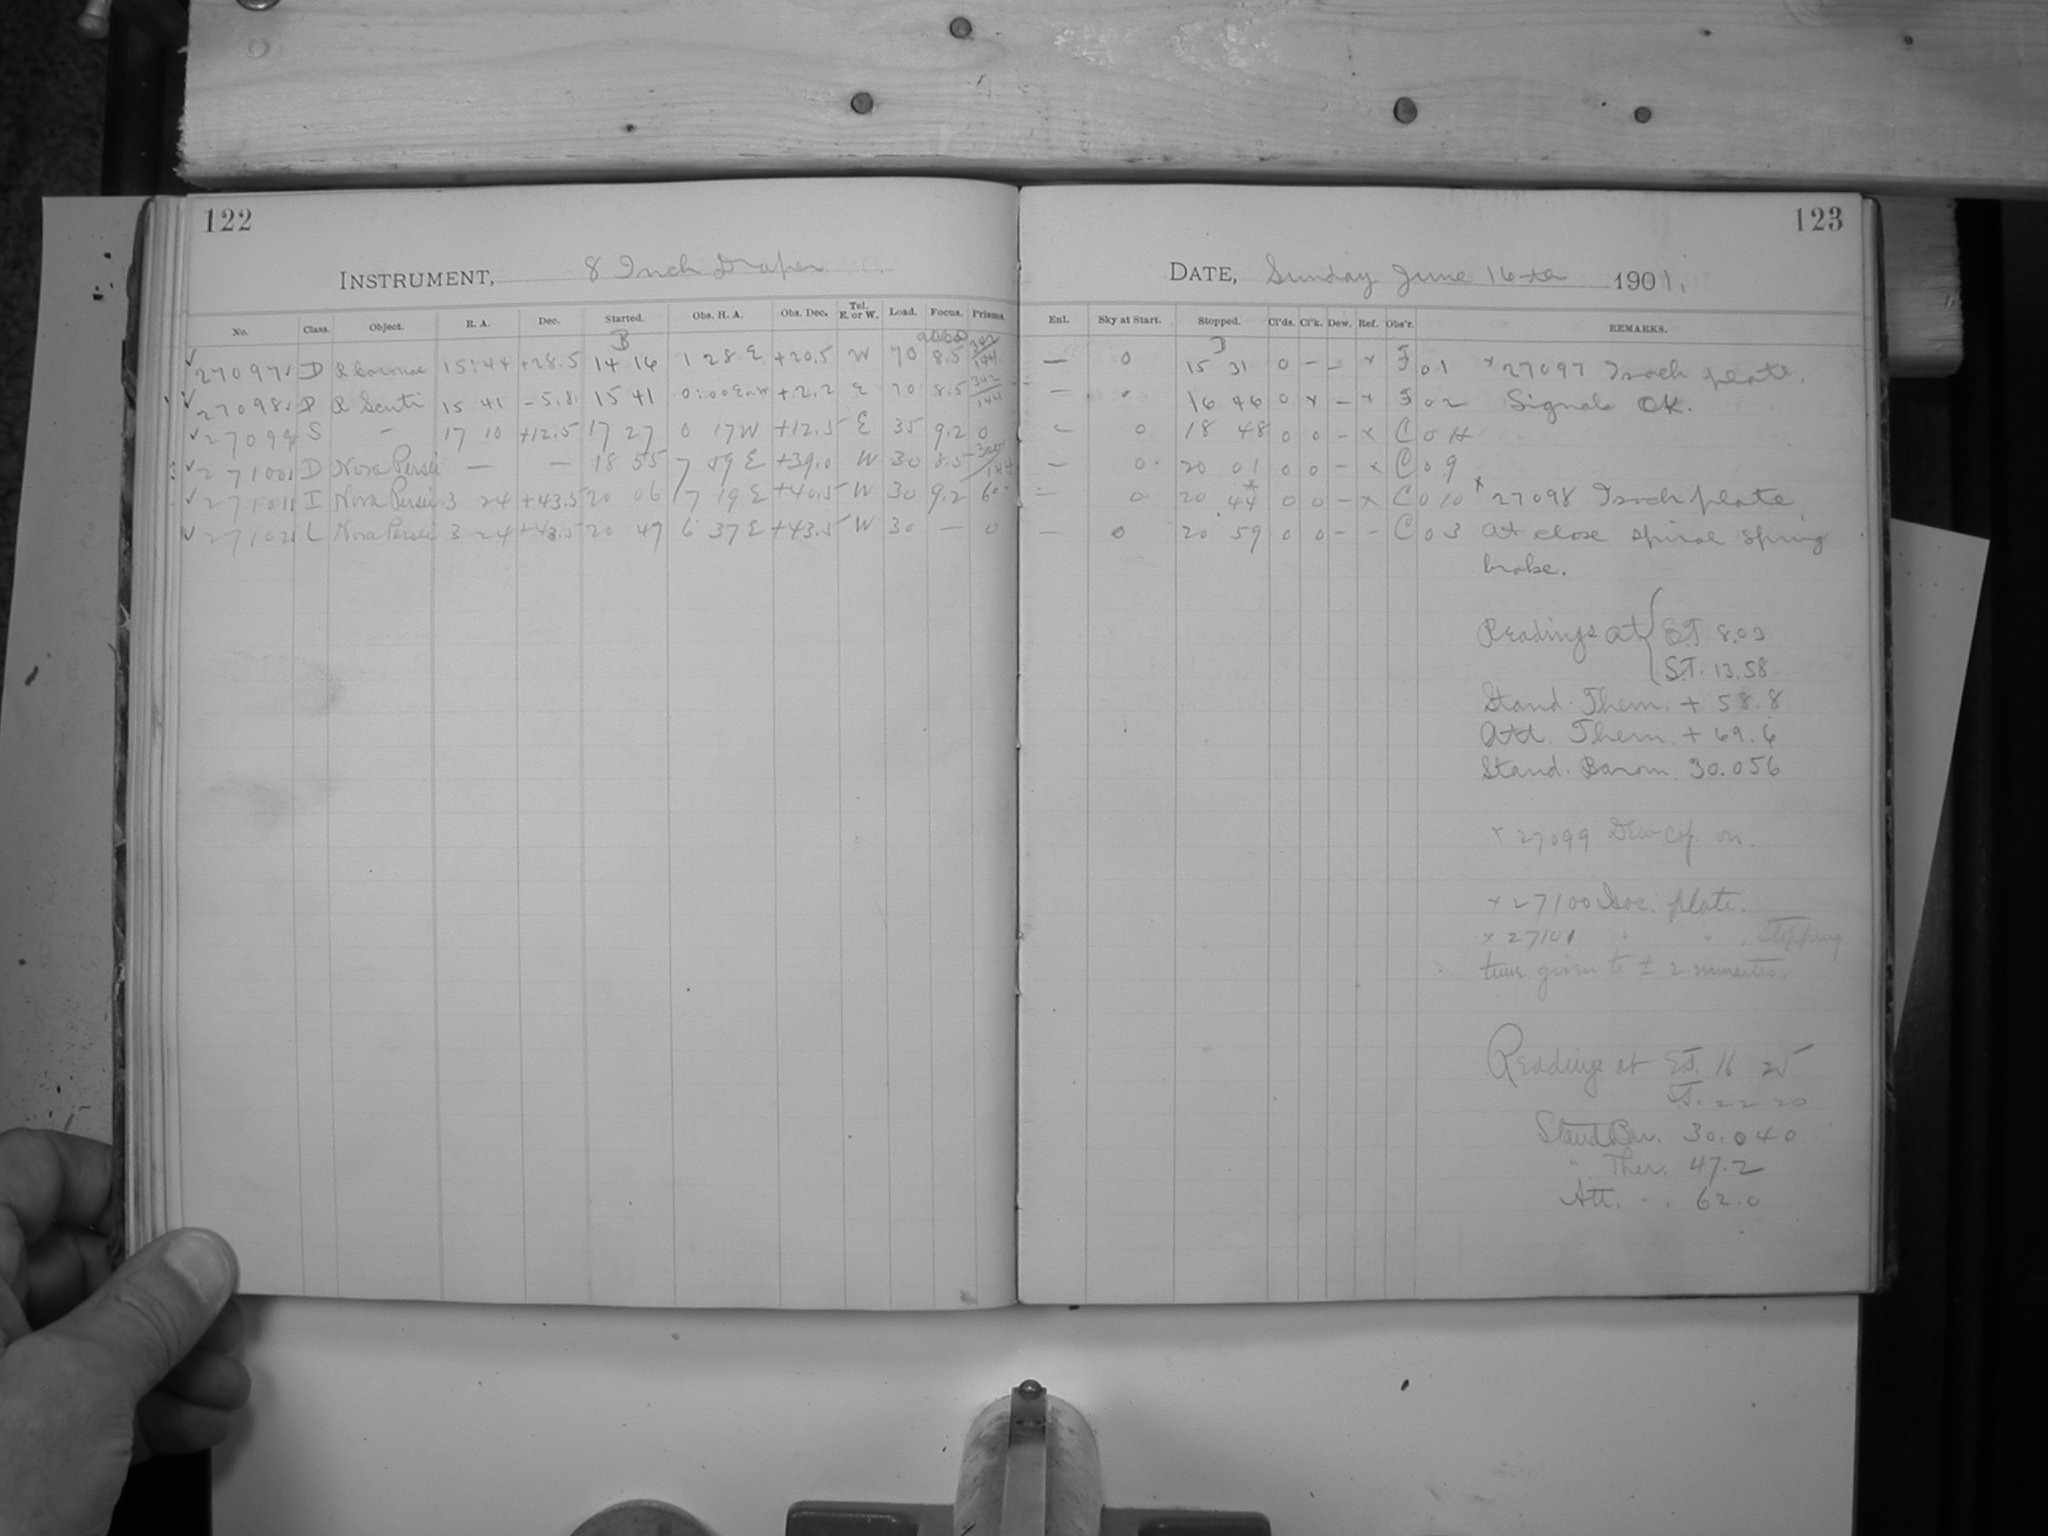 122
INSTRUMENT, 8 Inch Draper
No. Class. Object. R. A. Dec. Started. Obs. H. A. Obs. Dec. Tel. E. or W. Load. Focus. Prisms.
B
27097 D R Coronae 15:44 +28.5 14 16 1 28 E +20.5 W 70 8.5 342/144
27098 D R Scuti 15 41 -5.8 15 41 0:00 E or W +2.2 E 70 8.5 342/144
27099 S - 17 10 +12.5 17 27 0 17 W +12.5 E 35 9.2 0
27100 D Nova Persei — — 18 55 7 59 E +39.0 W 30 8.5 /144
27101 I Nova Persei 3 24 +43.5 20 06 7 19 E +40.5 W 30 9.2 60
27102 L Nova Persei 3 24 +43.5 20 47 6 37 E +43.5 W 30 — 0
123
DATE, Sunday June 16th 1901.
Enl. Sky at Start. Stopped. Cl'ds. Cl'k. Dew. Ref. Obs'r. REMARKS.
— 0 15 31 0 - - x F 01 x 27097 Isoch plate.
16 46 0 x - x F 02 Signals OK.
- 0 18 48 0 0 - x C 0 14
— 0 20 01 0 0 - x C 0 9
0 20 44 0 0 - x C 0 10 x 27098 Isoch plate,
— 0 20 59 0 0 - - C 0 3 At close spiral spring
broke.
Readings at { E.T. 8.03
S.T. 13.58
Stand. Therm. + 58.8
Att. Therm. + 69.6
Stand. Barom. 30.056
x 27099 Dew cap on.
x 27100 Isoc. plate.
x 27101 " " , Stopping
time given to ± 2 minutes.
Readings at E.T. 16 25
S.T. 22 20
Stand Bar. 30.040
" Ther. 47.2
Att. " 62.0